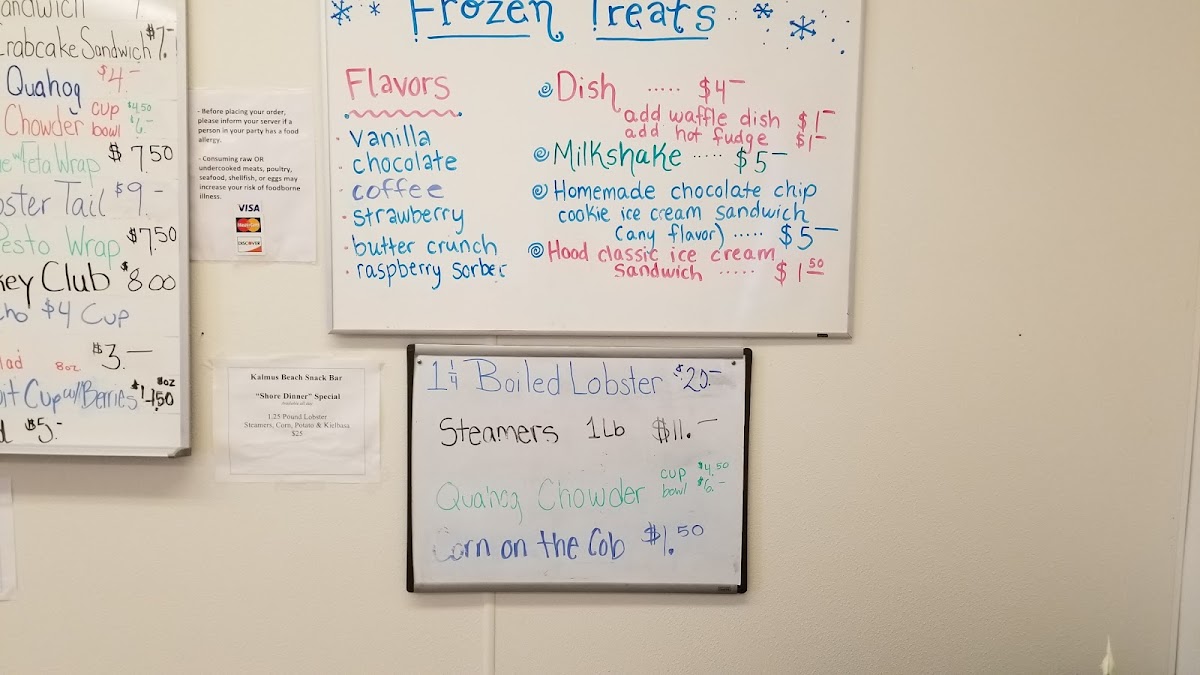 Crabcake Sandwich $7.-
Quahog $4.-
Chowder cup $4.50
bowl $6.-
Feta Wrap $7.50
Tail $9.-
Pesto Wrap $7.50
Club $8.00
$4 Cup
8oz $3.-
Cup w/Berries 8oz
$5.-
- Before placing your order,
please inform your server if a
person in your party has a food
allergy.
- Consuming raw OR
undercooked meats, poultry,
seafood, shellfish, or eggs may
increase your risk of foodborne
illness.
VISA
MasterCard
DISCOVER
Kalmus Beach Snack Bar
"Shore Dinner" Special
1.25 Pound Lobster
Steamers, Corn, Potato & Kielbasa
$25
Frozen Treats
Flavors
- vanilla
- chocolate
- coffee
- strawberry
- butter crunch
- raspberry sorbet
Dish ..... $4-
add waffle dish $1-
add hot fudge $1-
Milkshake ..... $5-
Homemade chocolate chip
cookie ice cream sandwich
(any flavor) ..... $5-
Hood classic ice cream
sandwich ..... $1.50
1 1/4 Boiled Lobster $20.-
Steamers 1Lb $11.-
Quahog Chowder cup $4.50
bowl $6.-
Corn on the Cob $1.50